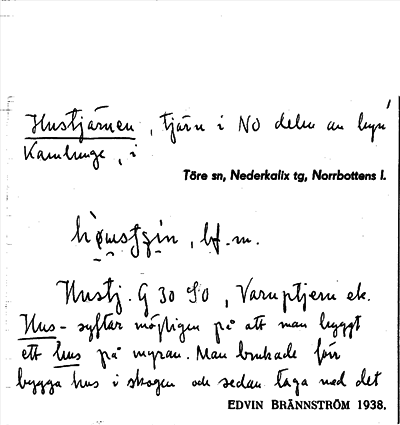 Hustjärnen, tjärn i NO delen av byn
Kamlunge, i
Töre sn, Nederkalix tg, Norrbottens l.
bf. m.
Hustj. G 30 SO, Varuptjern ek.
Hus- syftar möjligen på att man byggt
ett hus på myran. Man brukade för
bygga hus i skogen och sedan taga ned det
EDVIN BRÄNNSTRÖM 1938.